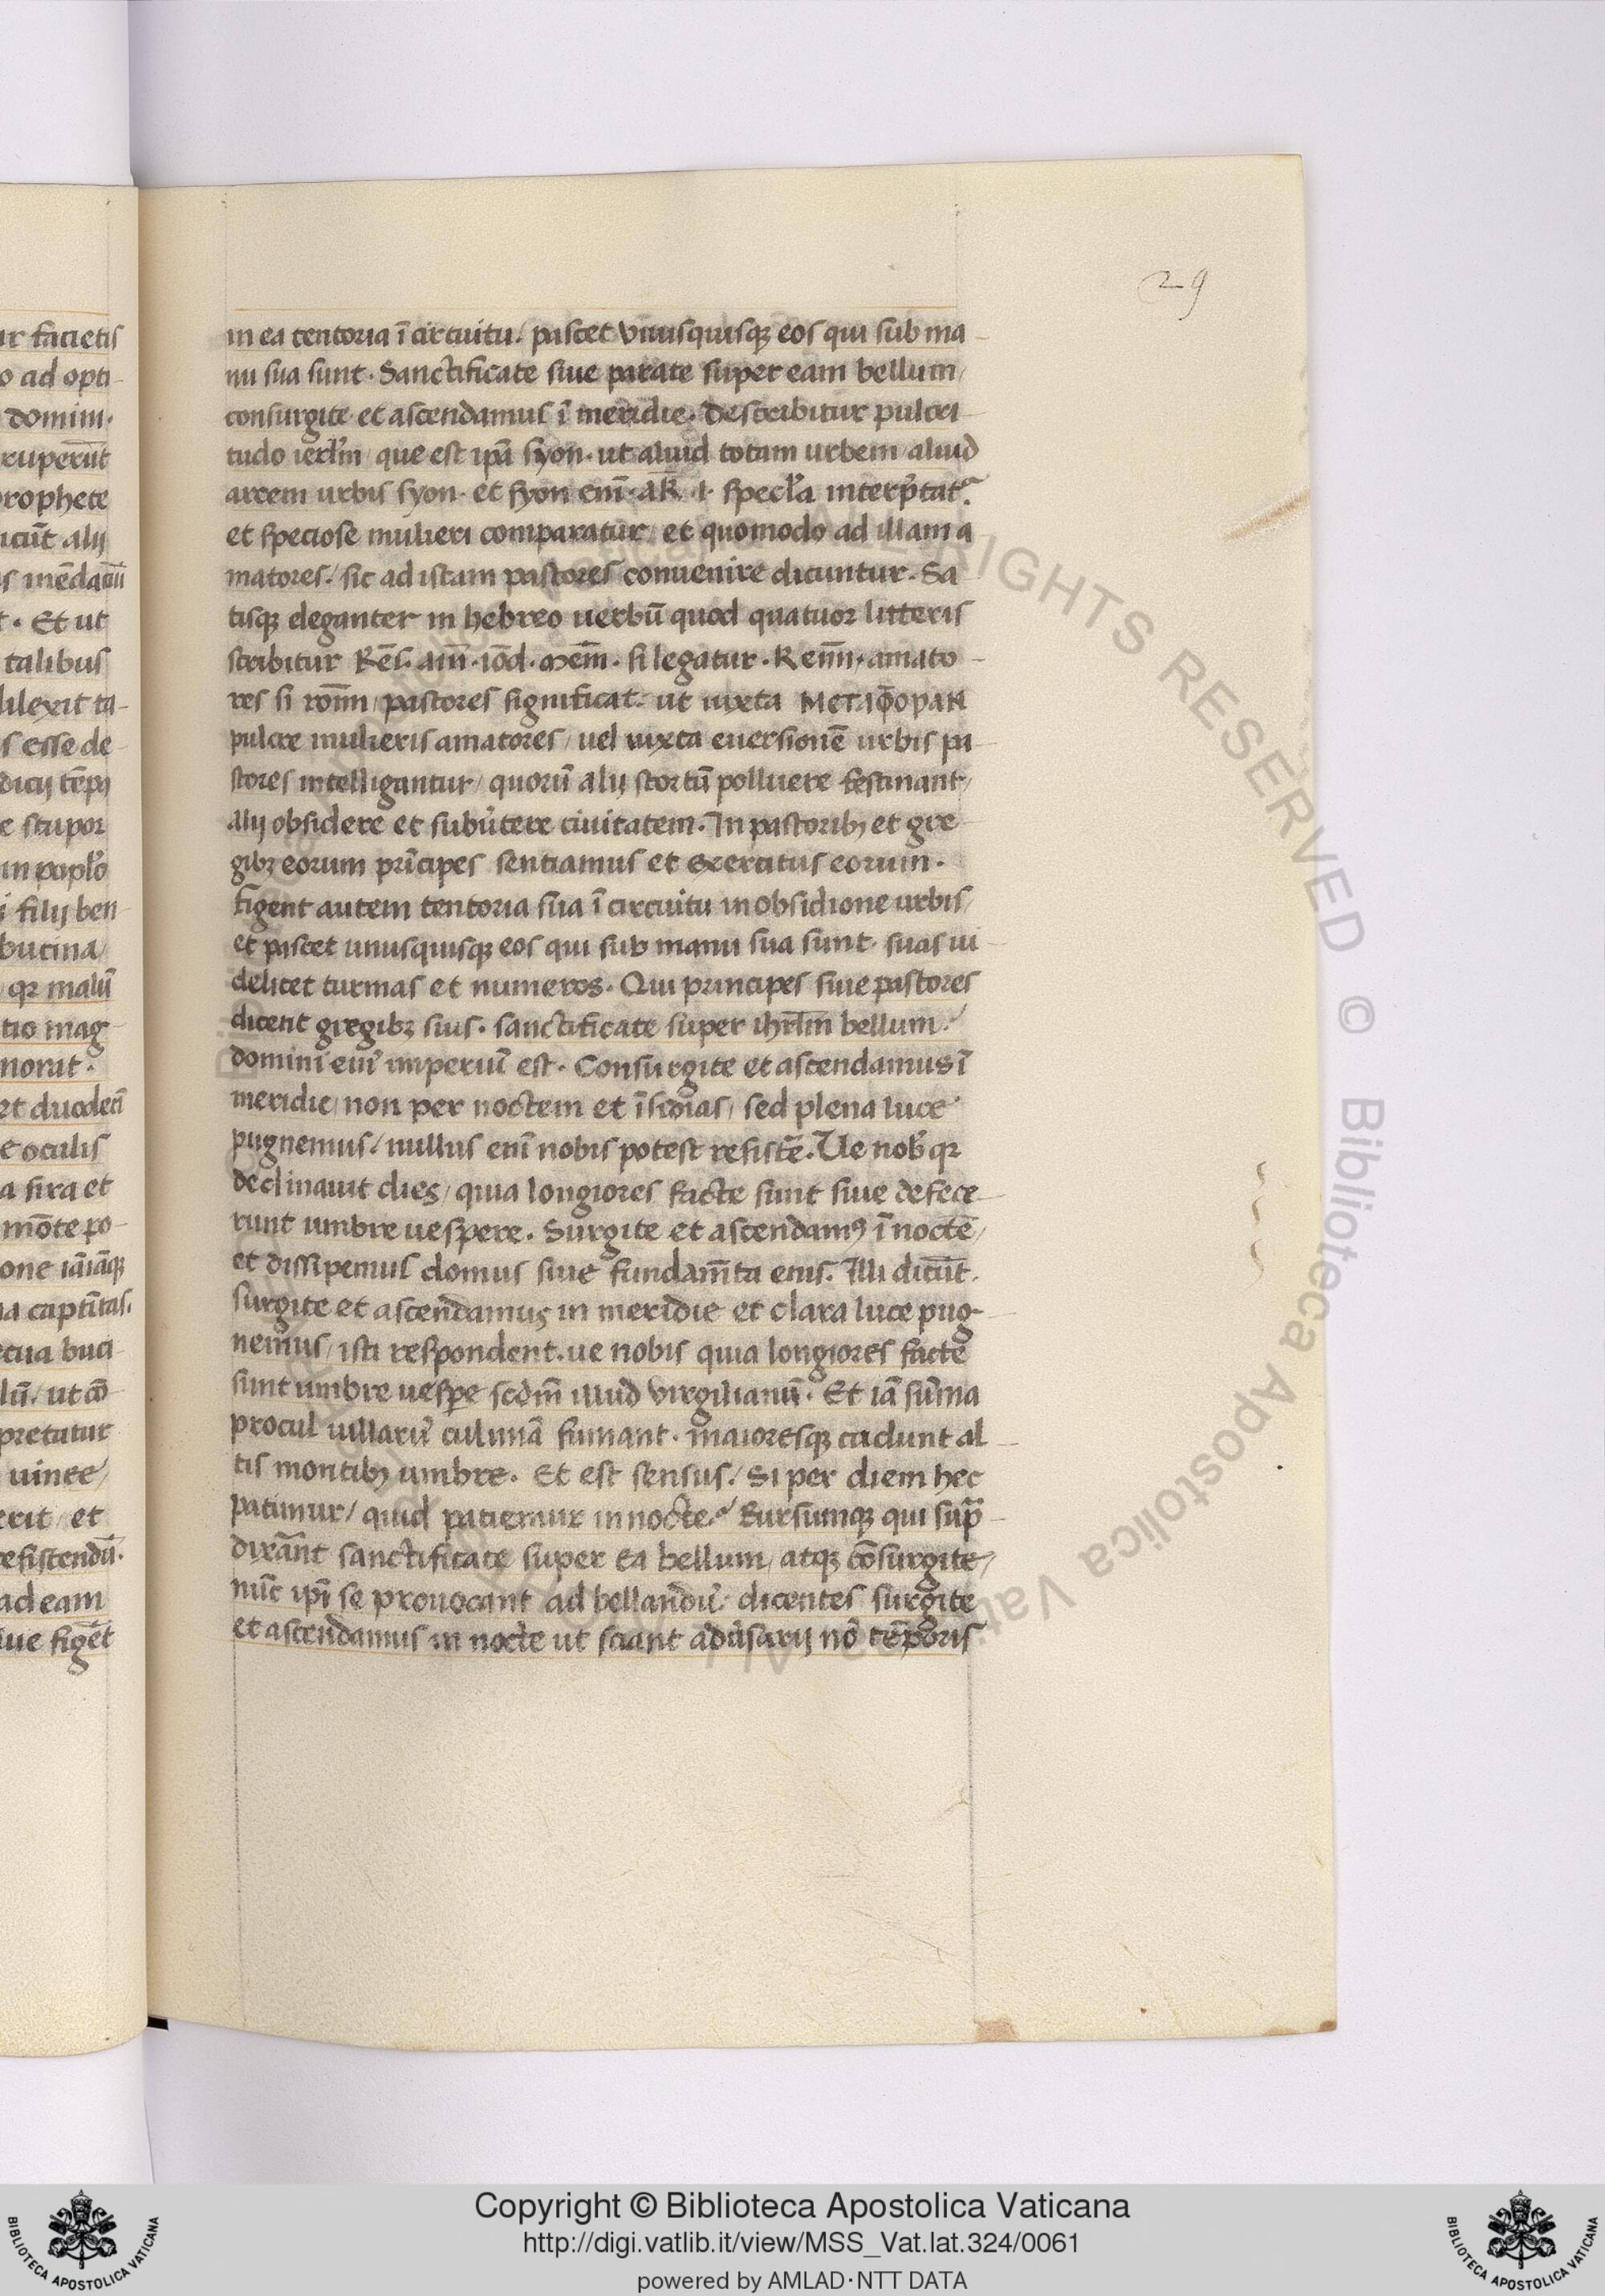 29
ur facietis
o ad opti-
domini.
ruperūt
prophete
icūt alij
s mēdaciū
t. Et ut
talibus
dilexit ta-
s esse de-
dicij tēpꝰ
e stupor
in poplo
i filij ben-
bucina/
qꝛ malū
tio mag-
norat.
et ducdecī
e oculis
a sira et
mōte po-
one iāiāqꝫ
a captītas.
ctua buci-
lū/ ut cō-
pretatur
uinee/
erit/ et
resistendū.
ad eam
iue figēt
in ea tentoria ī circuitu/ pascet vnusquisqꝫ eos qui sub ma-
nu sua sunt. Sanctificate siue parate super eam bellum/
consurgite et ascendamus ī meridie. Describitur pulcri-
tudo ierl̄m/ que est ip̄a syon. ut aliud totam urbem/ aliud
arcem urbis syon. et syon enī. aʀ̄. .i. specl̄a interp̄tatᷣ.
et speciose mulieri comparatur/ et quomodo ad illam a
matores/ sic ad istam pastores conuenire dicuntur. Sa
tisqꝫ eleganter in hebreo uerbū quod quatuor litteris
scribitur Rēs. aīn. iōd. mēm. si legatur. Reīm. amato-
res si roīm/ pastores significat. ut iuxta ΜΕΤΑΦΟΡΑΝ
pulcre mulieris amatores/ uel iuxta euersionē urbis pa-
stores intelligantur/ quorū alij scortū polluere festinant/
alij obsidere et subu̓tere ciuitatem. In pastoribꝫ et gre-
gibꝫ eorum prīcipes sentiamus et exercitus eorum.
figent autem tentoria sua ī circuitu in obsidione urbis/
et pascet unusquisqꝫ eos qui sub manu sua sunt. suas ui-
delicet turmas et numeros. Qui principes siue pastores
dicent gregibꝫ suis. sanctificate super ihrl̄m bellum/
domini enī imperiū est. Consurgite et ascendamus ī
meridie/ non per noctem et īsidias/ sed plena luce
pugnemus/ nullus enī nobis potest resistē. Ue nob̓ qꝛ
declinauit dies/ quia longiores facte sunt siue defece-
runt umbre uespere. Surgite et ascendamꝰ ī noctē/
et dissipemus domus siue fundam̄ta eius. Illi dicūt.
surgite et ascendamus in meridie et clara luce pug-
nemus/ isti respondent. ue nobis quia longiores facte
sunt umbre uesꝑe scdm̄ illud virgilianū. Et iā sūma
procul uillarū culmina fumant. maioresqꝫ cadunt al-
tis montibꝫ umbre. Et est sensus/ Si per diem hec
patimur/ quid patiemur in nocte? Rursumqꝫ qui sup̄-
dixāt sanctificate super ea bellum/ atqꝫ cōsurgite/
nūc ip̄i se prouocant ad bellandū. dicentes surgite
et ascendamus in nocte ut sciant adu̓sarij nō tēporis
Copyright © Biblioteca Apostolica Vaticana
http://digi.vatlib.it/view/MSS_Vat.lat.324/0061
powered by AMLAD·NTT DATA
BIBLIOTECA APOSTOLICA VATICANA
BIBLIOTECA APOSTOLICA VATICANA